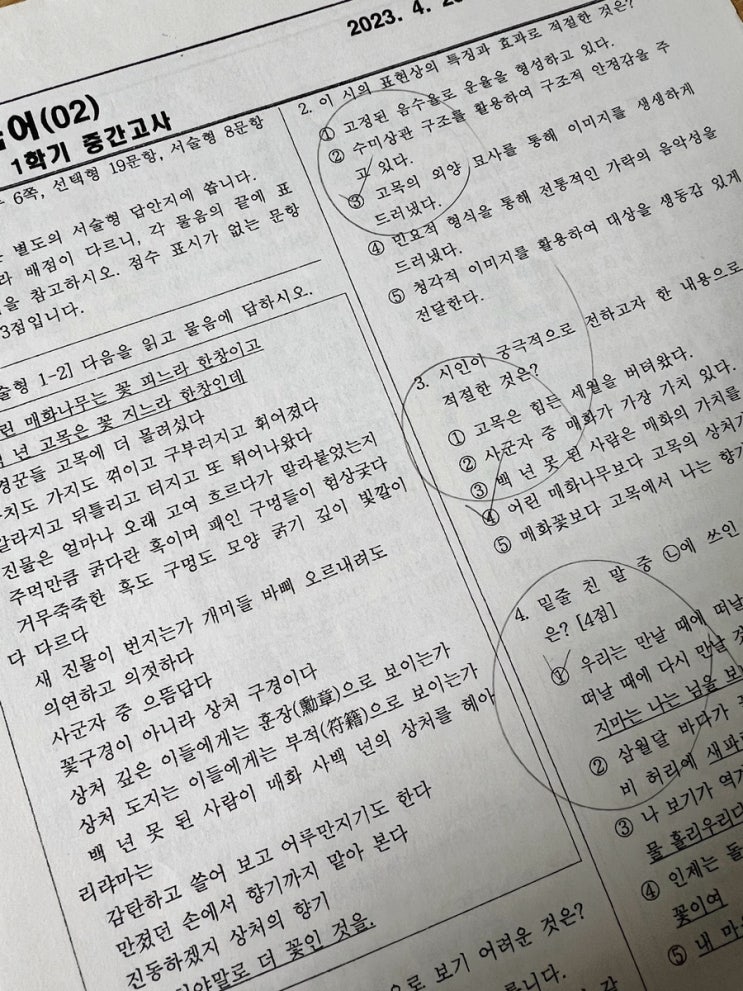 2023. 4.
어(02)
1학기 중간고사
6쪽, 선택형 19문항, 서술형 8문항
별도의 서술형 답안지에 씁니다.
배점이 다르니, 각 물음의 끝에 표
참고하시오. 점수 표시가 없는 문항
3점입니다.
1-2] 다음을 읽고 물음에 답하시오.
매화나무는 꽃 피느라 한창이고
년 고목은 꽃 지느라 한창인데
고목에 더 몰려섰다
가지도 꺾이고 구부러지고 휘어졌다
갈라지고 뒤틀리고 터지고 또 튀어나왔다
진물은 얼마나 오래 고여 흐르다가 말라붙었는지
주먹만큼 굵다란 혹이며 패인 구멍들이 험상궂다
거무죽죽한 혹도 구멍도 모양 굵기 깊이 빛깔이
다 다르다
새 진물이 번지는가 개미들 바삐 오르내려도
의연하고 의젓하다
사군자 중 으뜸답다
꽃구경이 아니라 상처 구경이다
상처 깊은 이들에게는 훈장(勳章)으로 보이는가
상처 도지는 이들에게는 부적(符籍)으로 보이는가
백 년 못 된 사람이 매화 사백 년의 상처를 헤아
리랴마는
감탄하고 쓸어 보고 어루만지기도 한다
만졌던 손에서 향기까지 맡아 본다
진동하겠지 상처의 향기
더 꽃인 것을.
보기 어려운 것은?
2. 이 시의 표현상의 특징과 효과로 적절한 것은?
① 고정된 음수율로 운율을 형성하고 있다.
② 수미상관 구조를 활용하여 구조적 안정감을 주
고 있다.
③ 고목의 외양 묘사를 통해 이미지를 생생하게
드러냈다.
④ 민요적 형식을 통해 전통적인 가락의 음악성을
드러냈다.
⑤ 청각적 이미지를 활용하여 대상을 생동감 있게
전달한다.
3. 시인이 궁극적으로 전하고자 한 내용으로
적절한 것은?
① 고목은 힘든 세월을 버텨왔다.
② 사군자 중 매화가 가장 가치 있다.
③ 백 년 못 된 사람은 매화의 가치를
④ 어린 매화나무보다 고목의 상처가
⑤ 매화꽃보다 고목에서 나는 향기
4. 밑줄 친 말 중 ㉡에 쓰인
은? [4점]
① 우리는 만날 때에 떠날
떠날 때에 다시 만날 것
지마는 나는 님을 보
② 삼월달 바다가
비 허리에 새파
③ 나 보기가 역겨
물 흘리우리다
④ 인제는 돌
꽃이여
⑤ 내 마